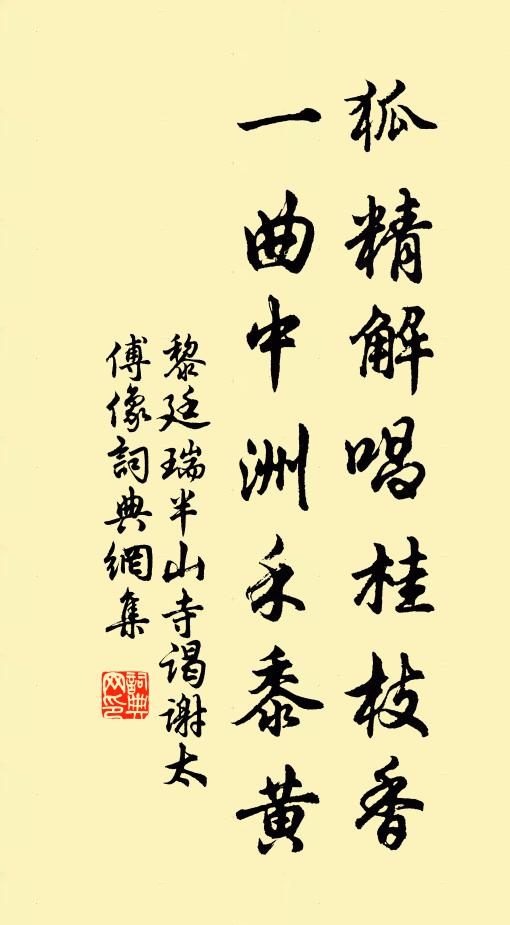 狐精解唱桂枝香
一曲中洲禾黍黄
黎廷瑞半山寺谒谢太
傅像詞典網集
詞典
网印